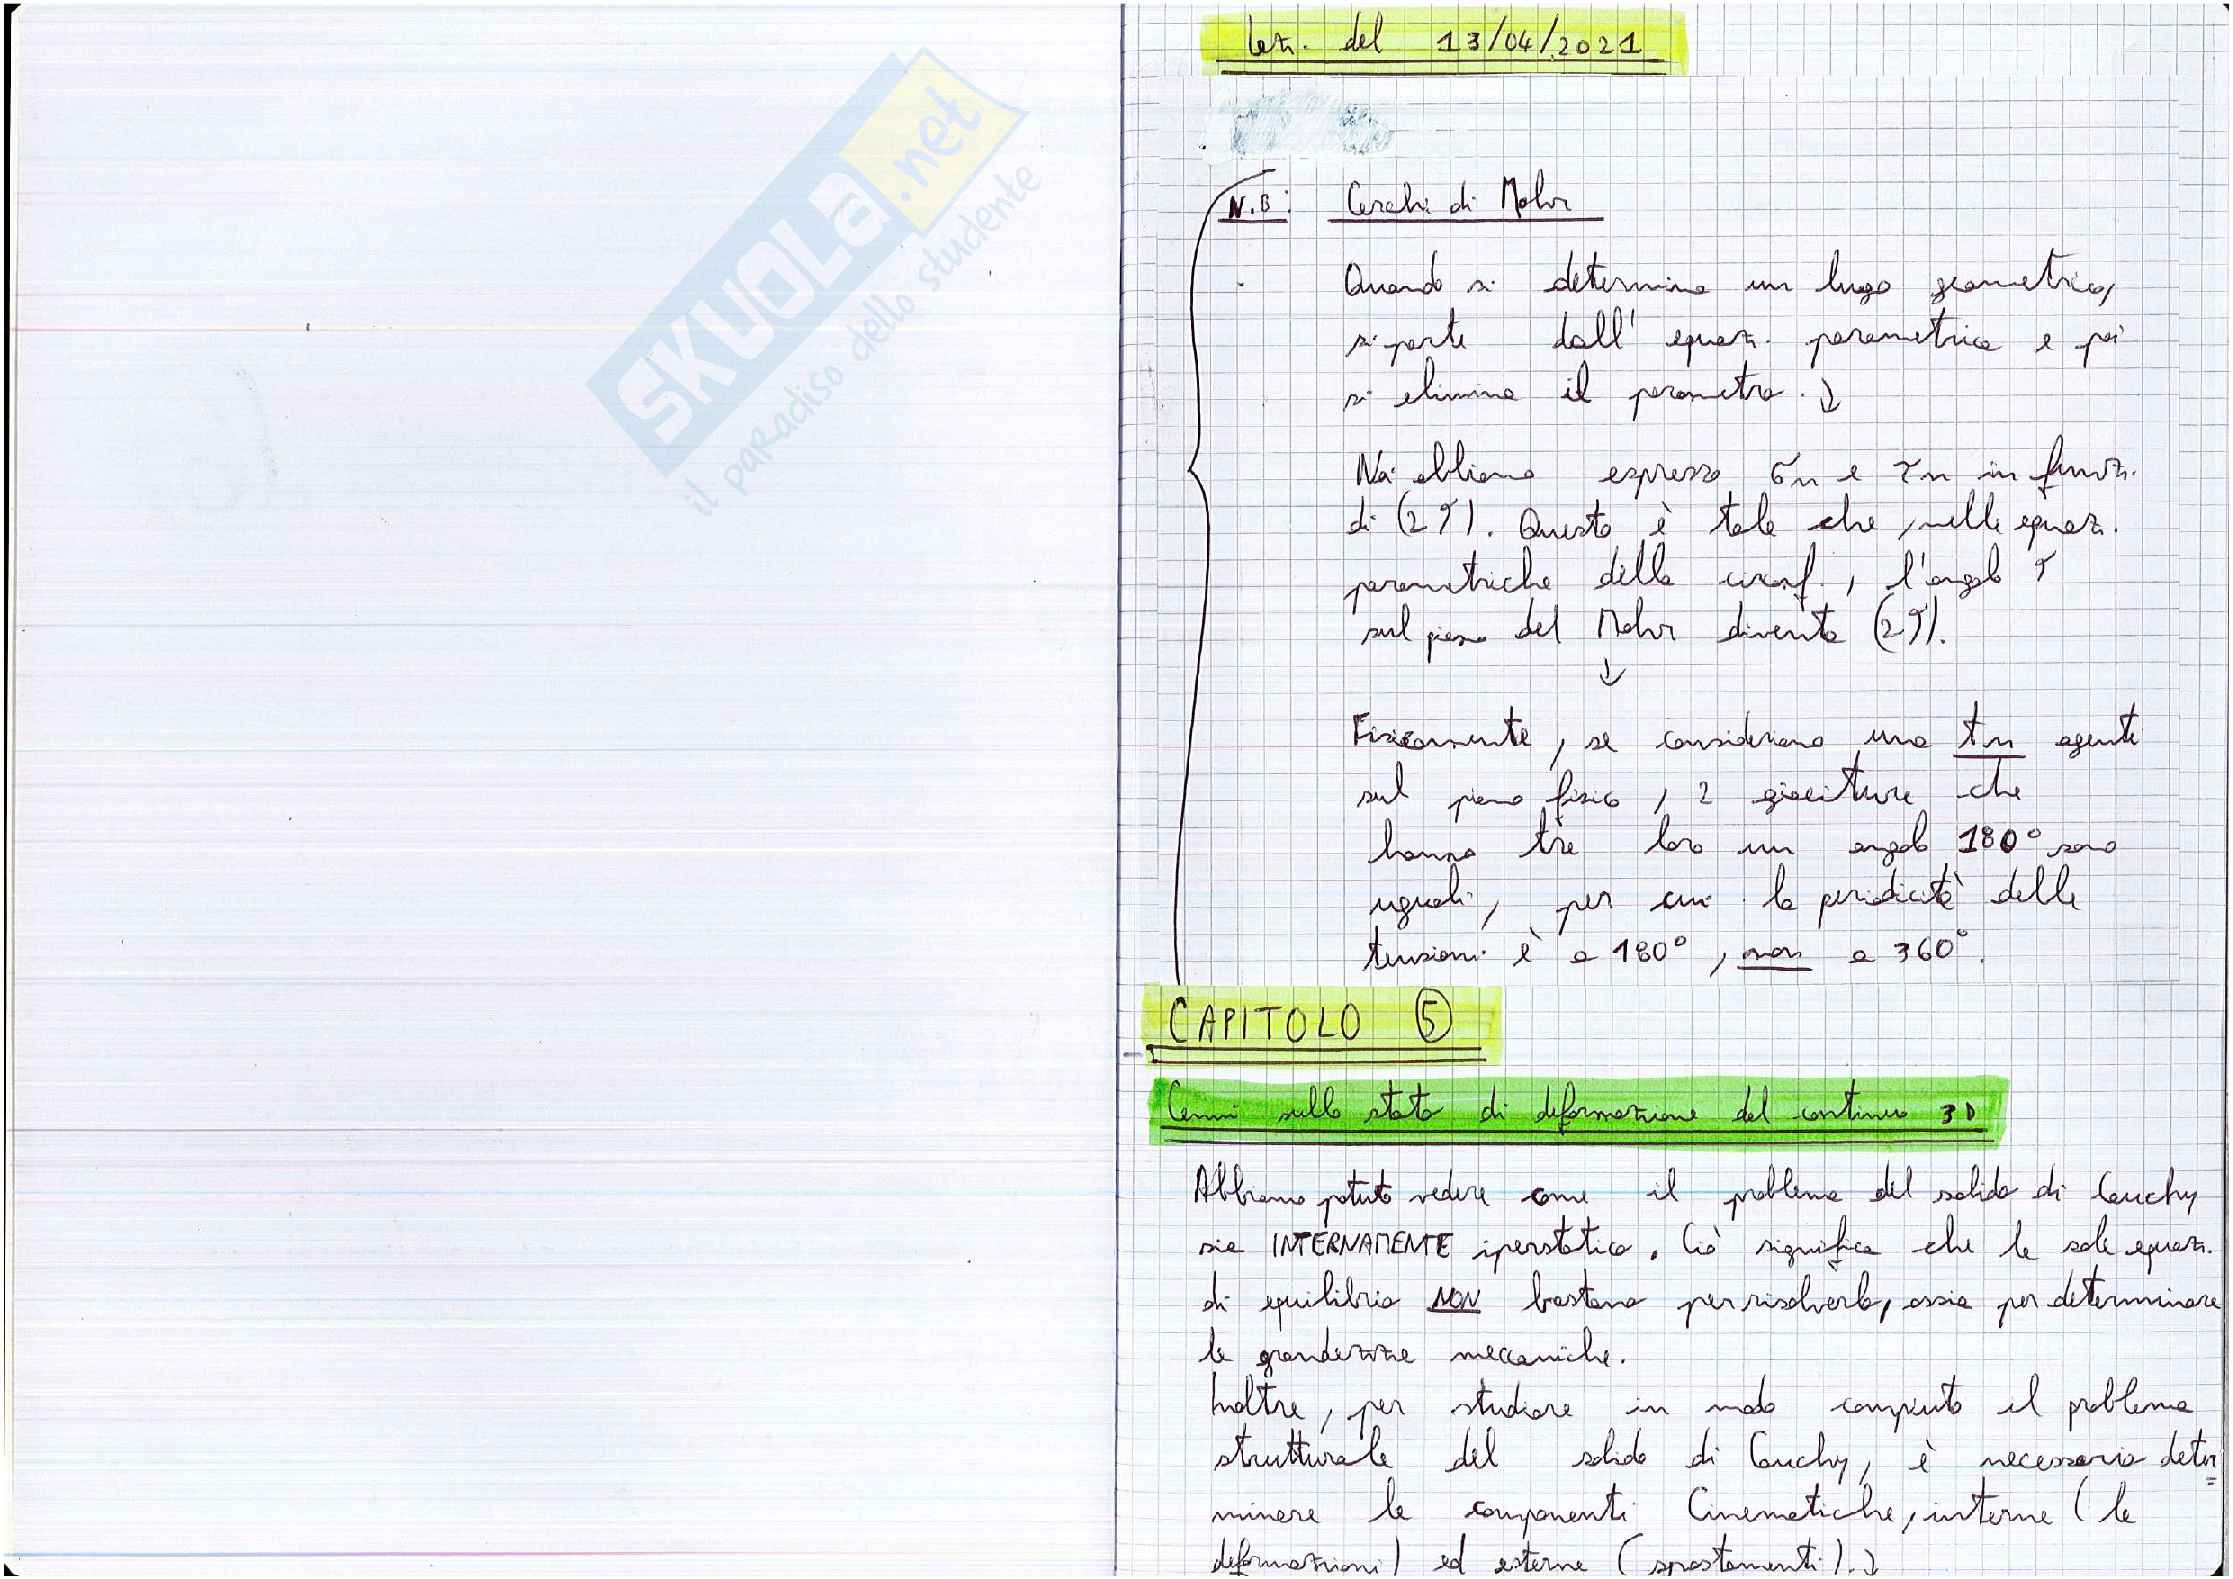 SKUOLA.net
il paradiso dello studente
Lez. del 13/04/2021
N.B: Cerchi di Mohr
Quando si determina un luogo geometrico,
si parte dall'equaz. parametrica e poi
si elimina il parametro. ↓
Noi abbiamo espresso σn e τn in funz.
di (2φ). Questo è tale che, nelle equaz.
parametriche della circonf., l'angolo φ
sul piano del Mohr diventa (2φ).
↓
Fisicamente, se consideriamo una tn agente
sul piano fisico, 2 giaciture che
hanno tra loro un angolo 180° sono
uguali, per cui la periodicità delle
tensioni è a 180°, non a 360°.
CAPITOLO 5
Cenni sullo stato di deformazione del continuo 3D
Abbiamo potuto vedere come il problema del solido di Cauchy
sia INTERNAMENTE iperstatico. Ciò significa che le sole equaz.
di equilibrio NON bastano per risolverlo, ossia per determinare
le grandezze meccaniche.
Inoltre, per studiare in modo compiuto il problema
strutturale del solido di Cauchy, è necessario deter=
minare le componenti Cinematiche, interne (le
deformazioni) ed esterne (spostamenti).↓